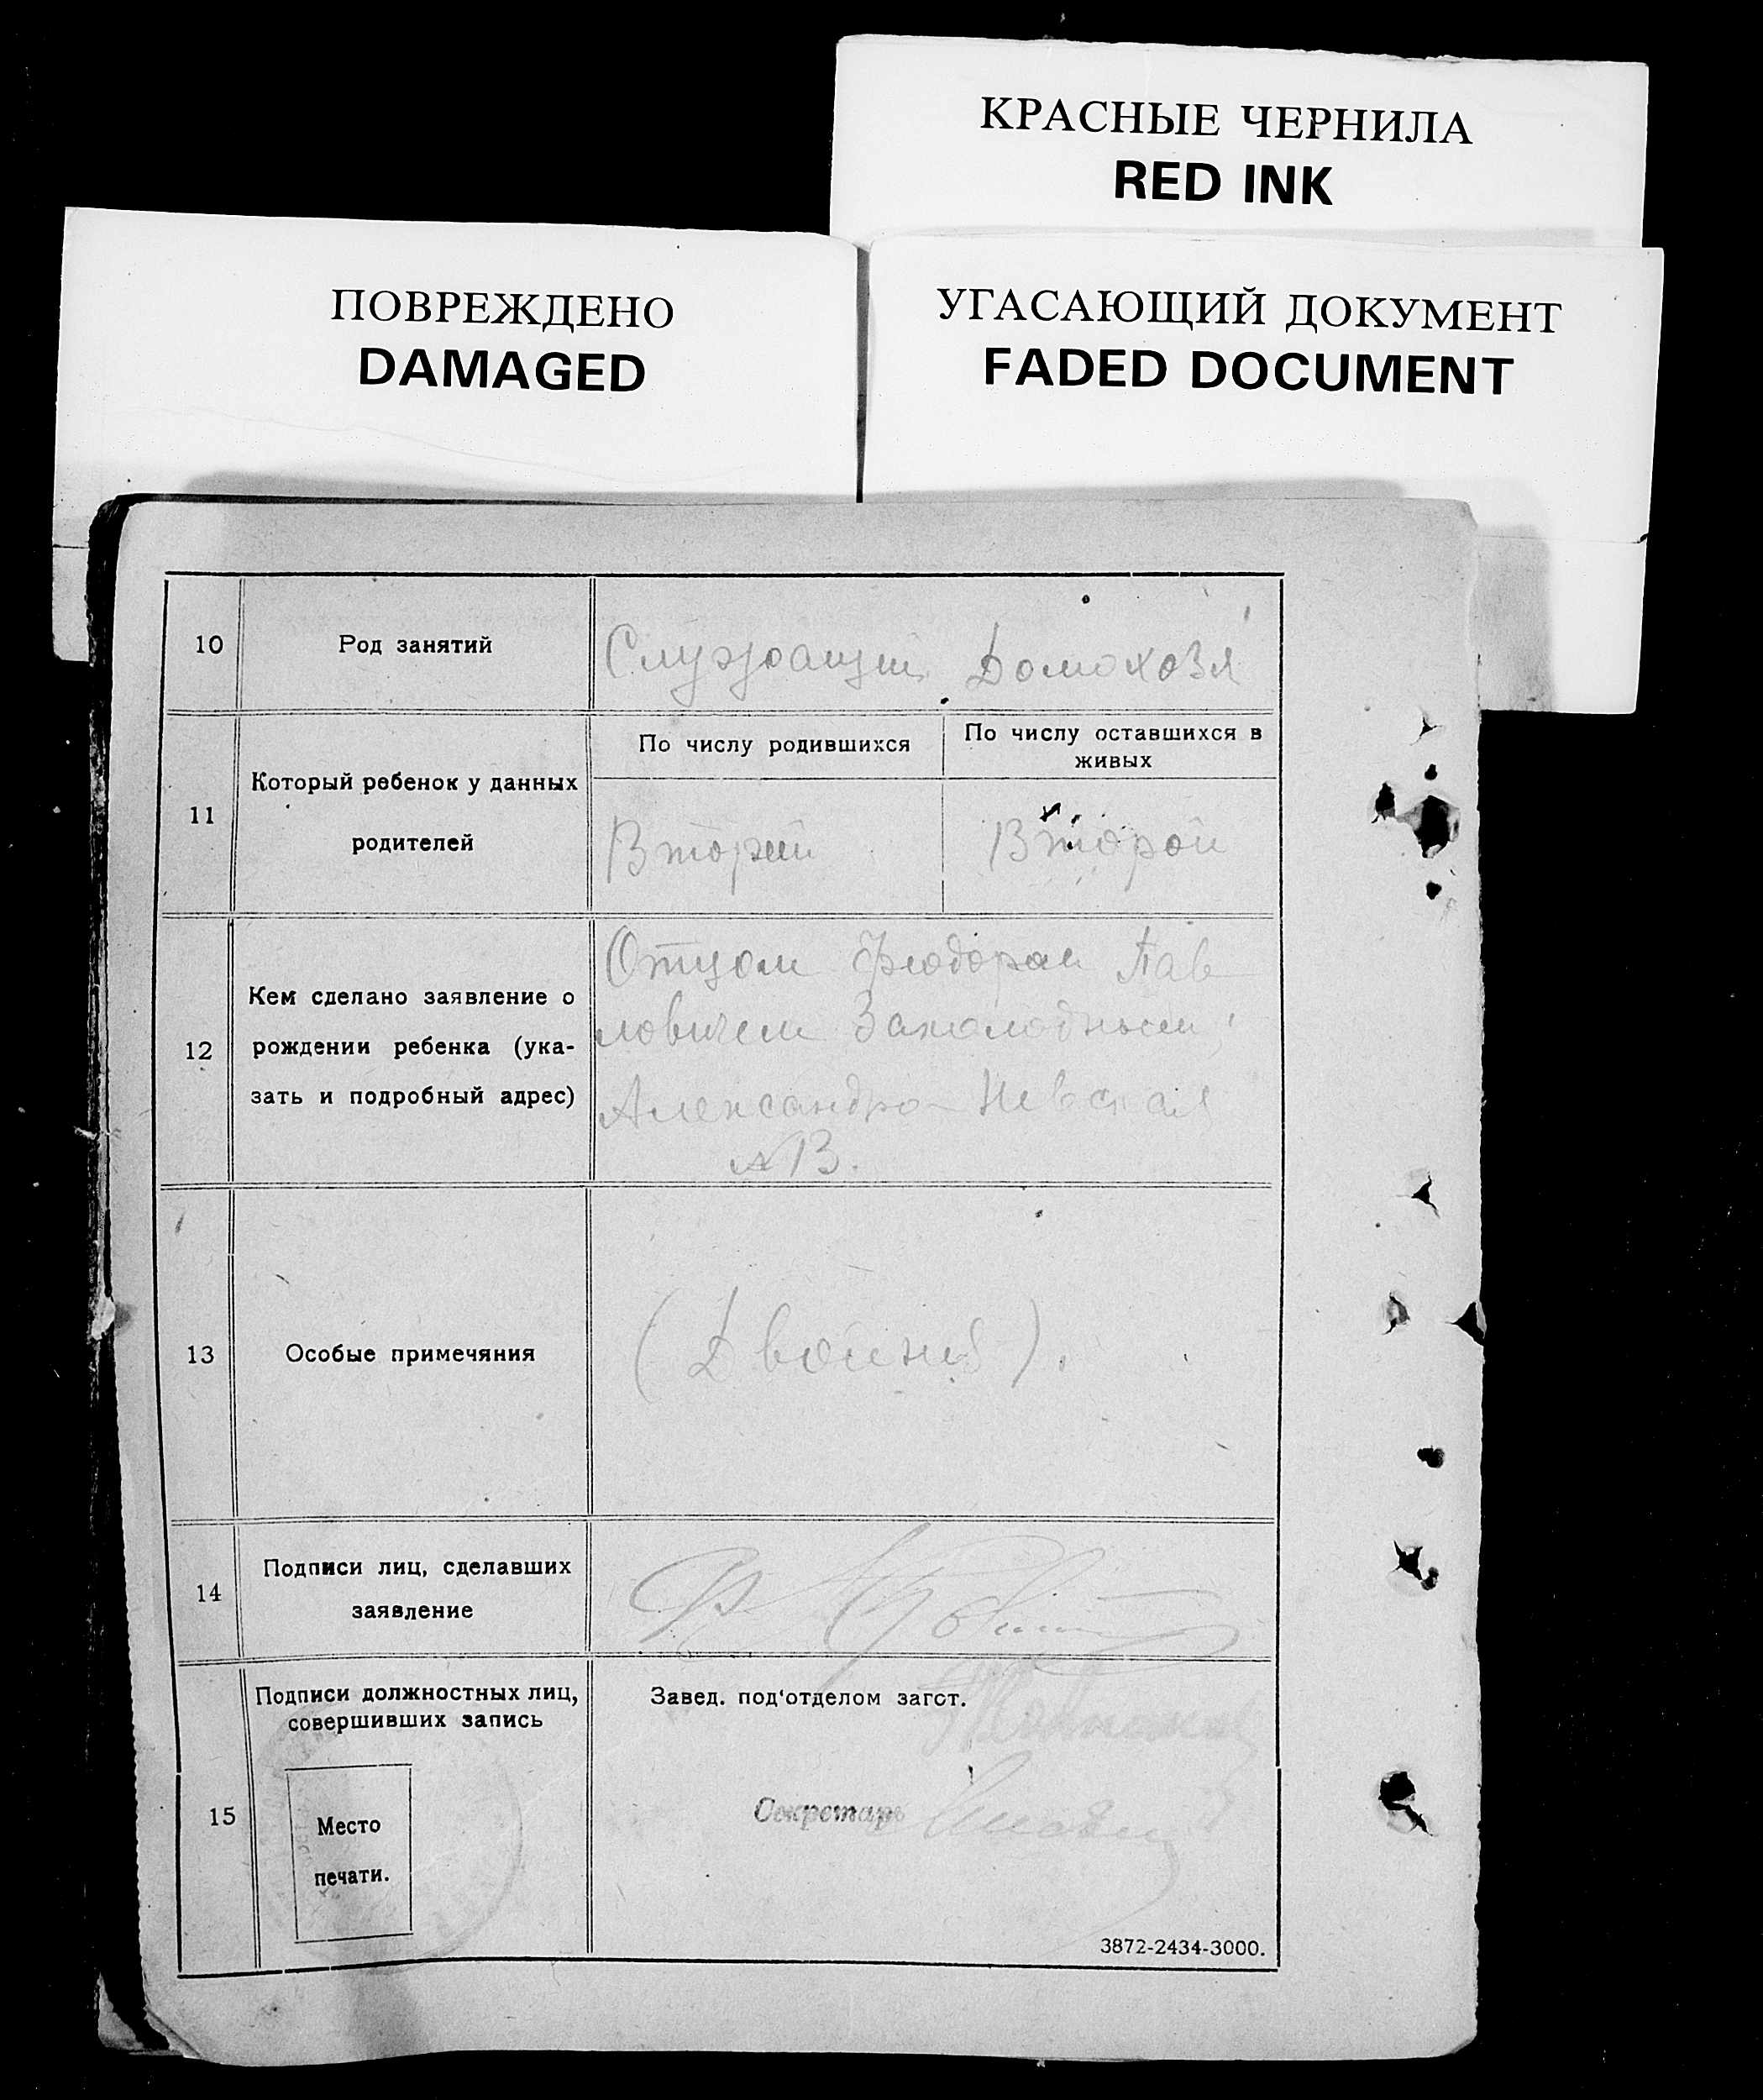 КРАСНЫЕ ЧЕРНИЛА
RED INK
ПОВРЕЖДЕНО
DAMAGED
УГАСАЮЩИЙ ДОКУМЕНТ
FADED DOCUMENT
10 Род занятий Служащий Домохозя
11 Который ребенок у данных
родителей
По числу родившихся
По числу оставшихся в
живых
Второй Второй
12 Кем сделано заявление о
рождении ребенка (ука-
зать и подробный адрес)
Отцом Феодорам Пав
ловичем
Александро-Невская
13 Особые примечяния
14 Подписи лиц, сделавших
заявление
15 Подписи должностных лиц,
совершивших запись
Место
печати.
Завед. под‘отделом загст.
Секретарь
3872-2434-3000.